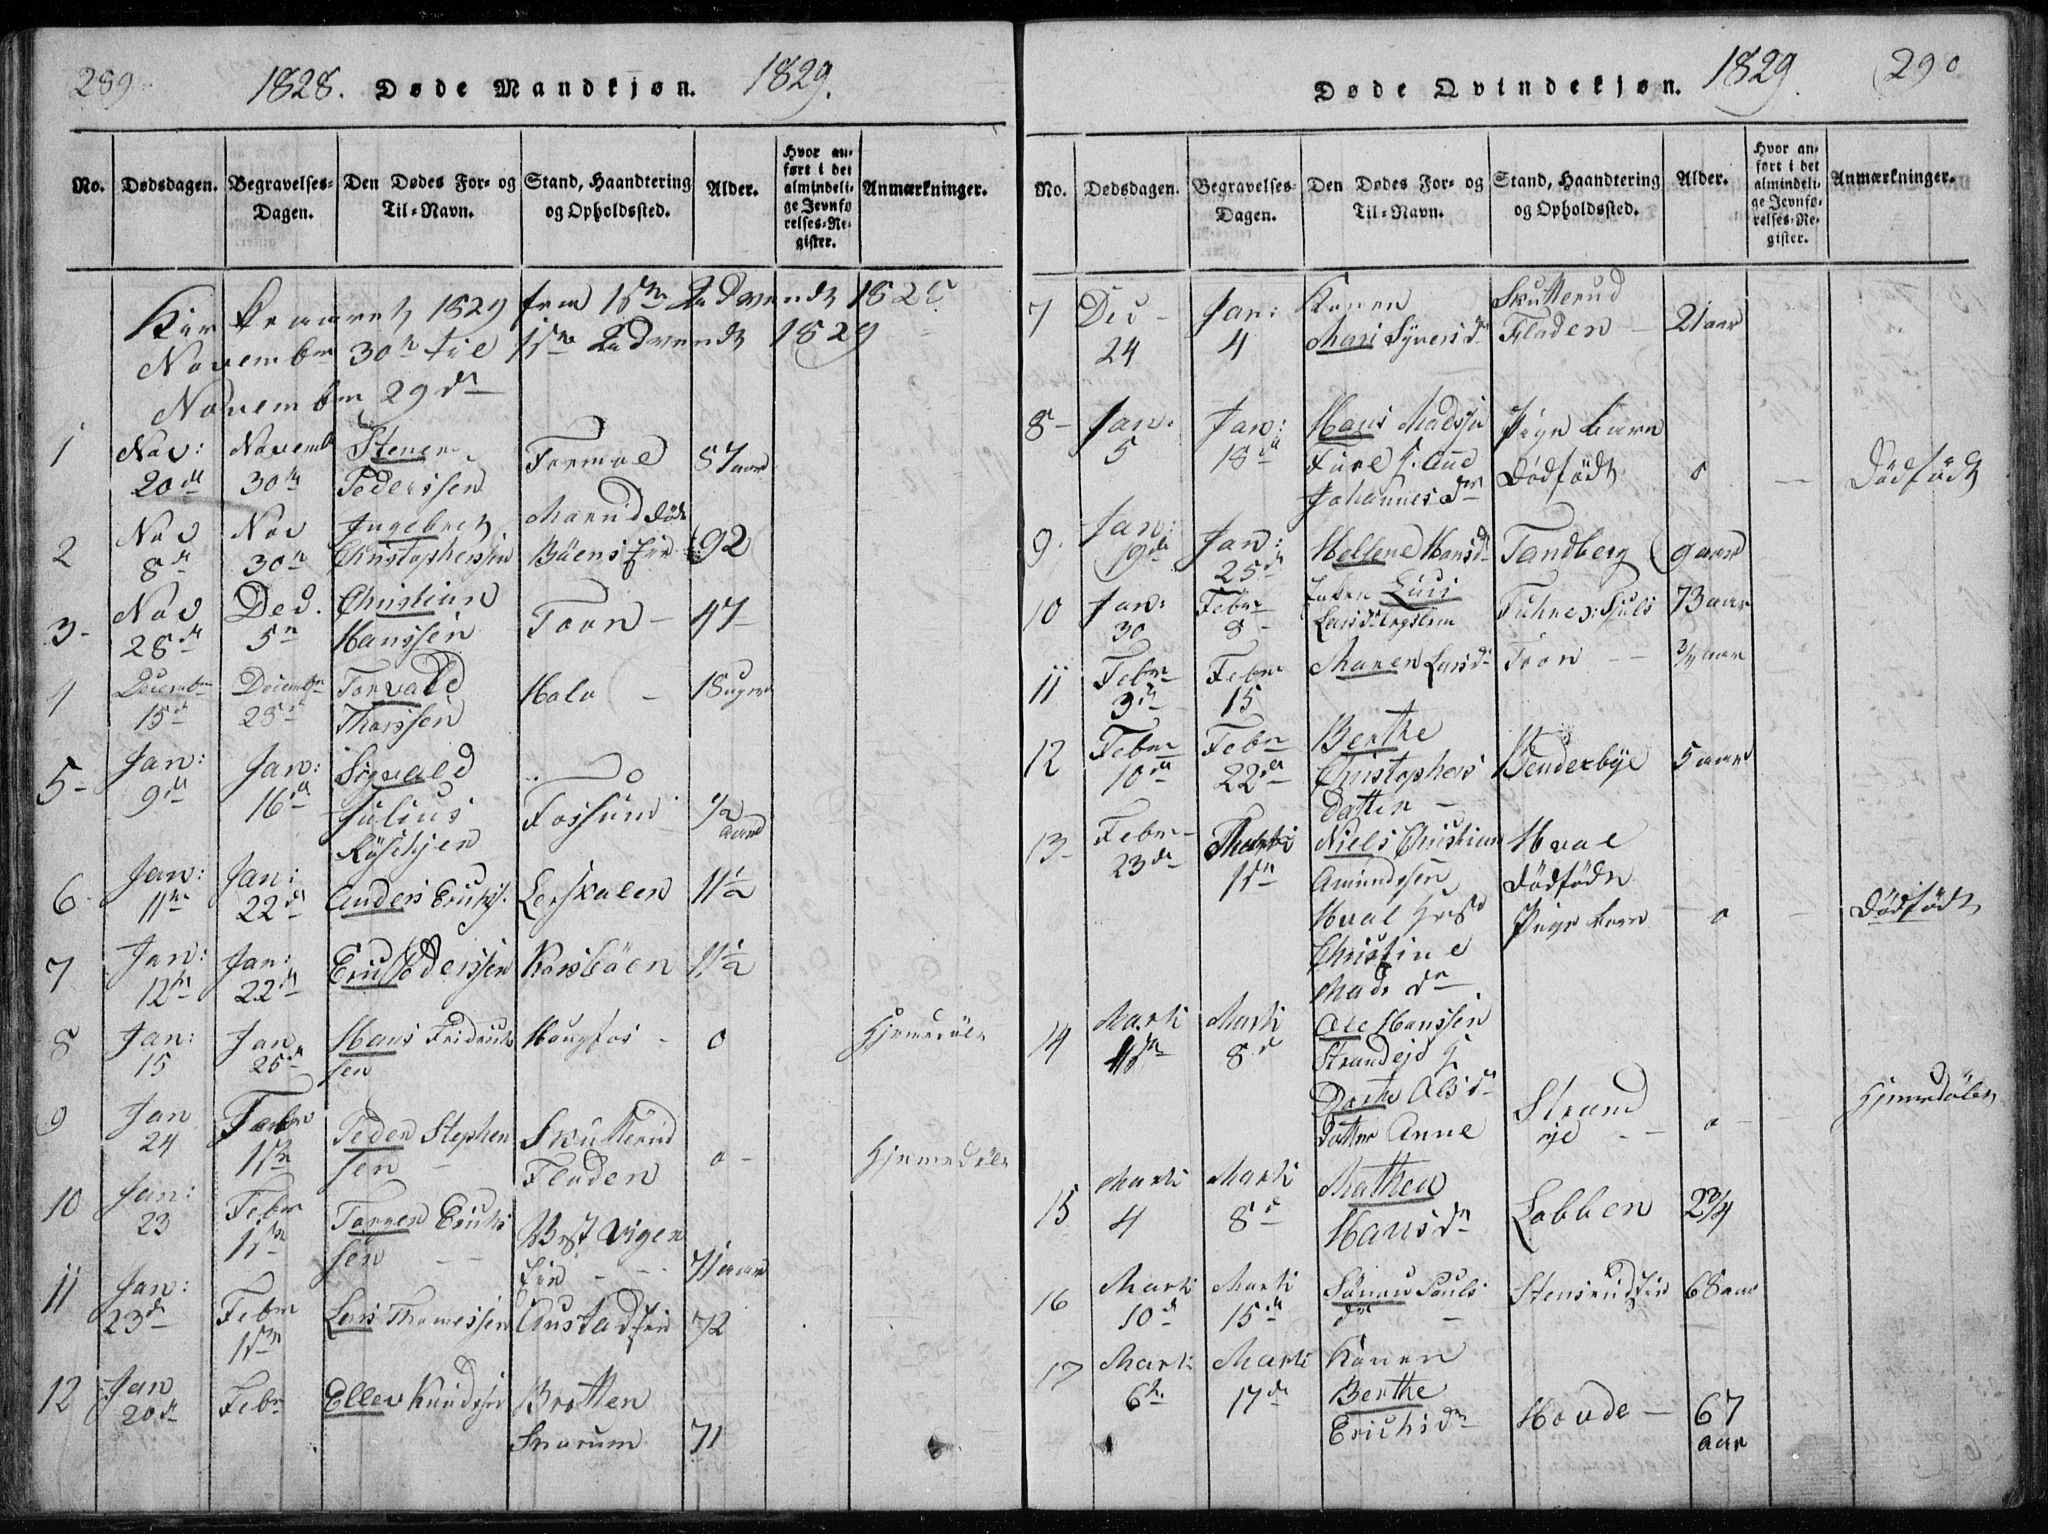 289
1828. Døde Mandkjøn. 1829.
No. Dødsdagen. Begravelses-Dagen. Den Dødes For- og Til-Navn. Stand, Haandtering og Opholdssted. Alder. Hvor anført i det almindelige Jevnførelses-Register. Anmærkninger.
Kirkeaaret 1829 fra 1ste Advendt 1828
November 30te til 1ste Advendt 1829
November 29de
1 Nov: 20de Novemb 30te Stener Pederssen Formoe 87 aar
2 Nov 8de Nov 30te Ingebret Christopherssen Bøens Eie 92
3 Nov 28de Dec. 5te Christian Hanssen Foon 47
4 Decembr 15de Decembr 28de Torvald Thorssen Holo 18 uger
5 Jan: 9de Jan: 16de Sigvald Julius Fossum 1/2 aar
6 Jan: 11te Jan: 22de Anders Erichs. Lerskalen 11 1/2
7 Jan: 12te Jan: 22de Erich Pederssen Korsbøen 11 1/2
8 Jan: 15 Jan 25de Hans Fridrichssen Hougfos 0 Hjemedøbt
9 Jan 24 Febr 1ste Peder Stephenssen Skutterud Fladen 0 Hjemmedøbt
10 Jan: 23 Febr 1ste Torren Erichssen Vest Vigen Eie 71 aar
11 Jan: 23de Febr 1ste Lars Thomessen Austad Eie 72
12 Jan 20de Febr Ellev Knudssen Brotten Snarum 71
290
Døde Qvindekjøn. 1829.
No. Dødsdagen. Begravelses-Dagen. Den Dødes For- og Til-Navn. Stand, Haandtering og Opholdssted. Alder. Hvor anført i det almindelige Jevnførelses-Register. Anmærkninger.
7 Dec 24 Jan: 4 Konen Mari Syversdr Skutterud Fladen 21 aar
8 Jan: 5 Jan: 18de Hans Madssen Fure Johannesdr Pige barn Dödfödt 0 Dödfödt
9 Jan: 19de Jan: 25de Hellene Hansdr Tandberg 9 aar
10 Jan: 30 Febr 8 Enken Lisi Larsdr 73 aar
11 Febr 3de Febr 15 Maren Larsdr Foon 3/4 aar
12 Febr 10de Febr 22de Berthe Christophers datter Venderbye 5 aar
13 Febr 23de Marti 1ste Niels Christian Amundssen Hval Christine Madsdr Hval dödfödt Pige barn 0 Dödfödt
14 Marti Marti 8d Ole Hanssen Strandeje Dorthe Olsdr datter Anne Strand eje 0 Hjemedøbt
15 Marti 4 Marti 8d Mathea Hansdr Lobben 2 3/4
16 Marti 10de Marti 15de Pauls dr Stensrud Eie 68 aar
17 Marti 6te Marti 17de Konen Berthe Erichsdr Hovde 67 aar